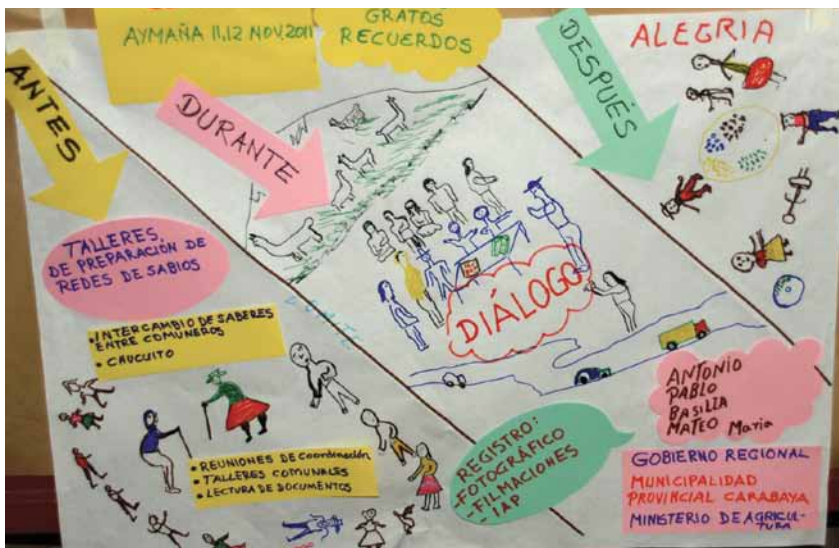 AYMAÑA 11,12 NOV,2011
GRATOS
RECUERDOS
ANTES
DURANTE
DESPUÉS
ALEGRIA
TALLERES,
DE PREPARACIÓN DE
REDES DE SABIOS
• INTERCAMBIO DE SABERES
ENTRE COMUNEROS
• CHUCUITO
• REUNIONES DE COORDINACIÓN
• TALLERES COMUNALES
• LECTURA DE DOCUMENTOS
DIÁLOGO
REGISTRO:
-FOTOGRÁFICO
-FILMACIONES
-IAP
ANTONIO
PABLO
BASILIA
MATEO Maria
GOBIERNO REGIONAL
MUNICIPALIDAD
PROVINCIAL CARABAYA
MINISTERIO DE AGRICUL-
TURA